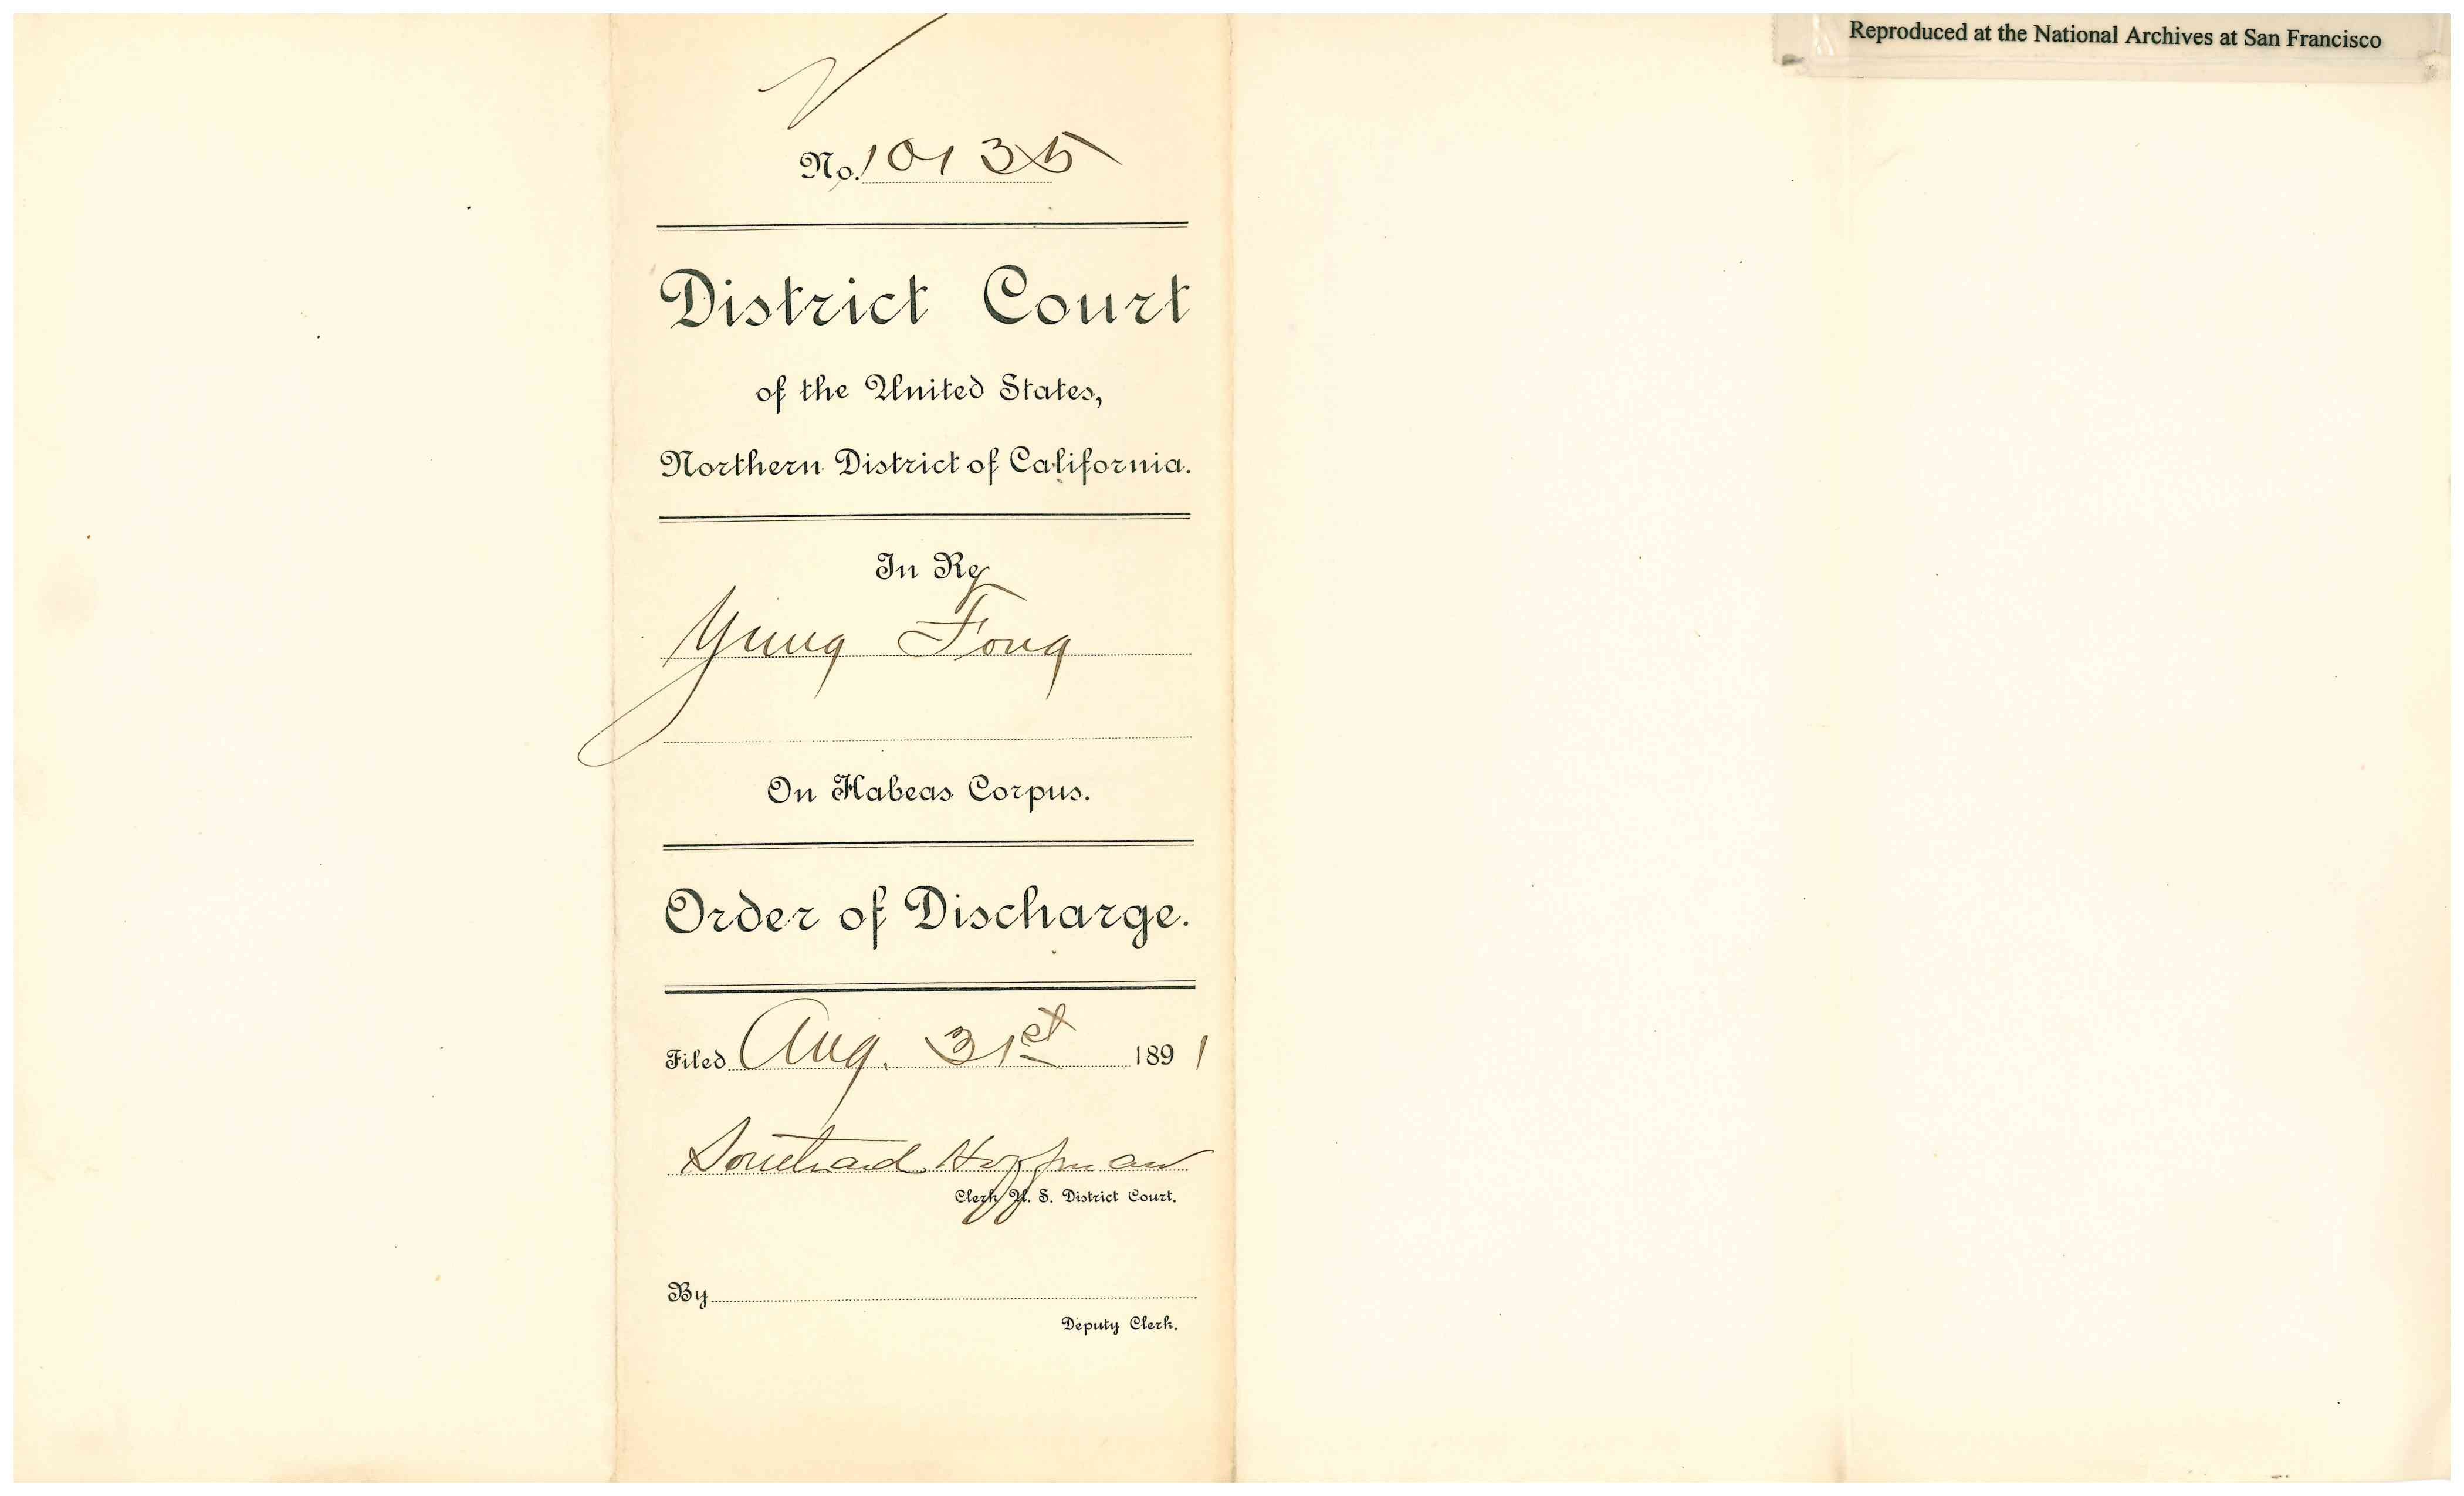 Reproduced at the National Archives at San Francisco
No. 10135
District Court
of the United States,
Northern District of California.
In Re
Yung Fong
On Habeas Corpus.
Order of Discharge.
Filed Aug. 31st 1891
Southard Hoffman
Clerk U. S. District Court.
By
Deputy Clerk.